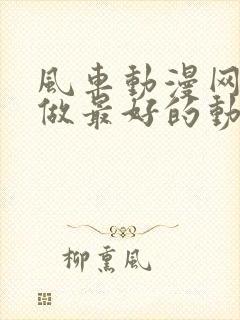 風車動漫网
做最好的動
柳熏風